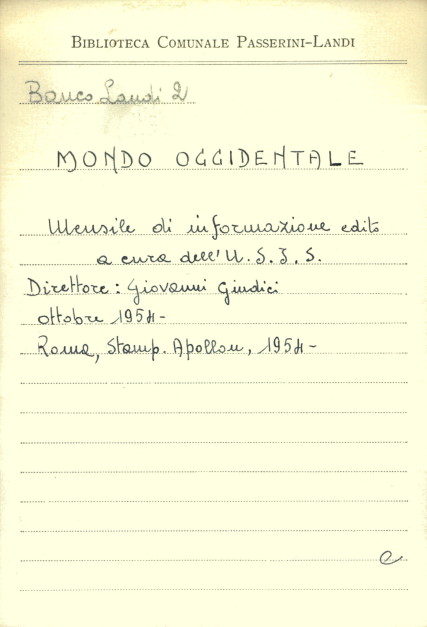 BIBLIOTECA COMUNALE PASSERINI-LANDI
Banco Landi 2
MONDO OCCIDENTALE
Mensile di informazione edito
a cura dell'U.S.I.S.
Direttore: Giovanni Giudici
ottobre 1954-
Roma, Stamp. Apollon, 1954-
e